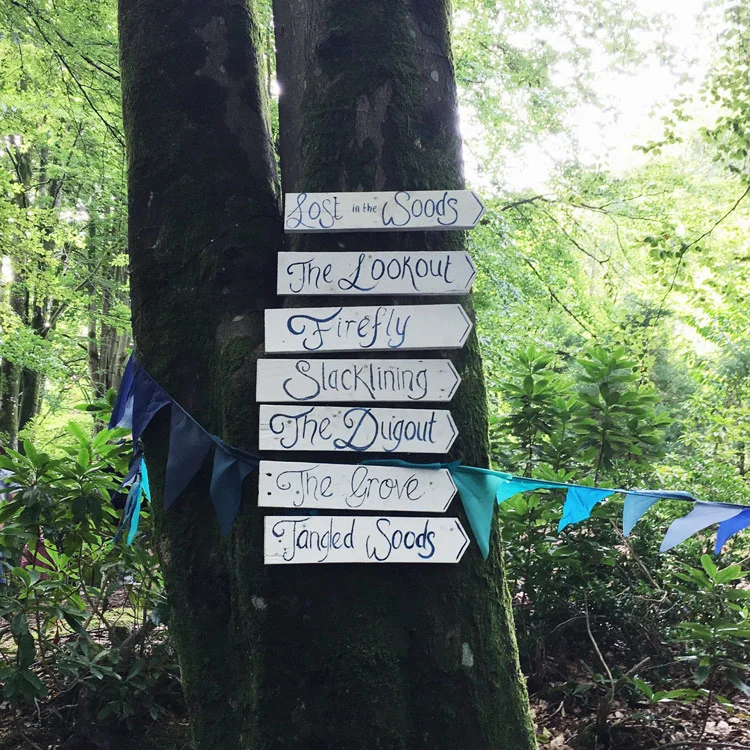 Lost in the Woods
The Lookout
Firefly
Slacklining
The Dugout
The Grove
Tangled Woods